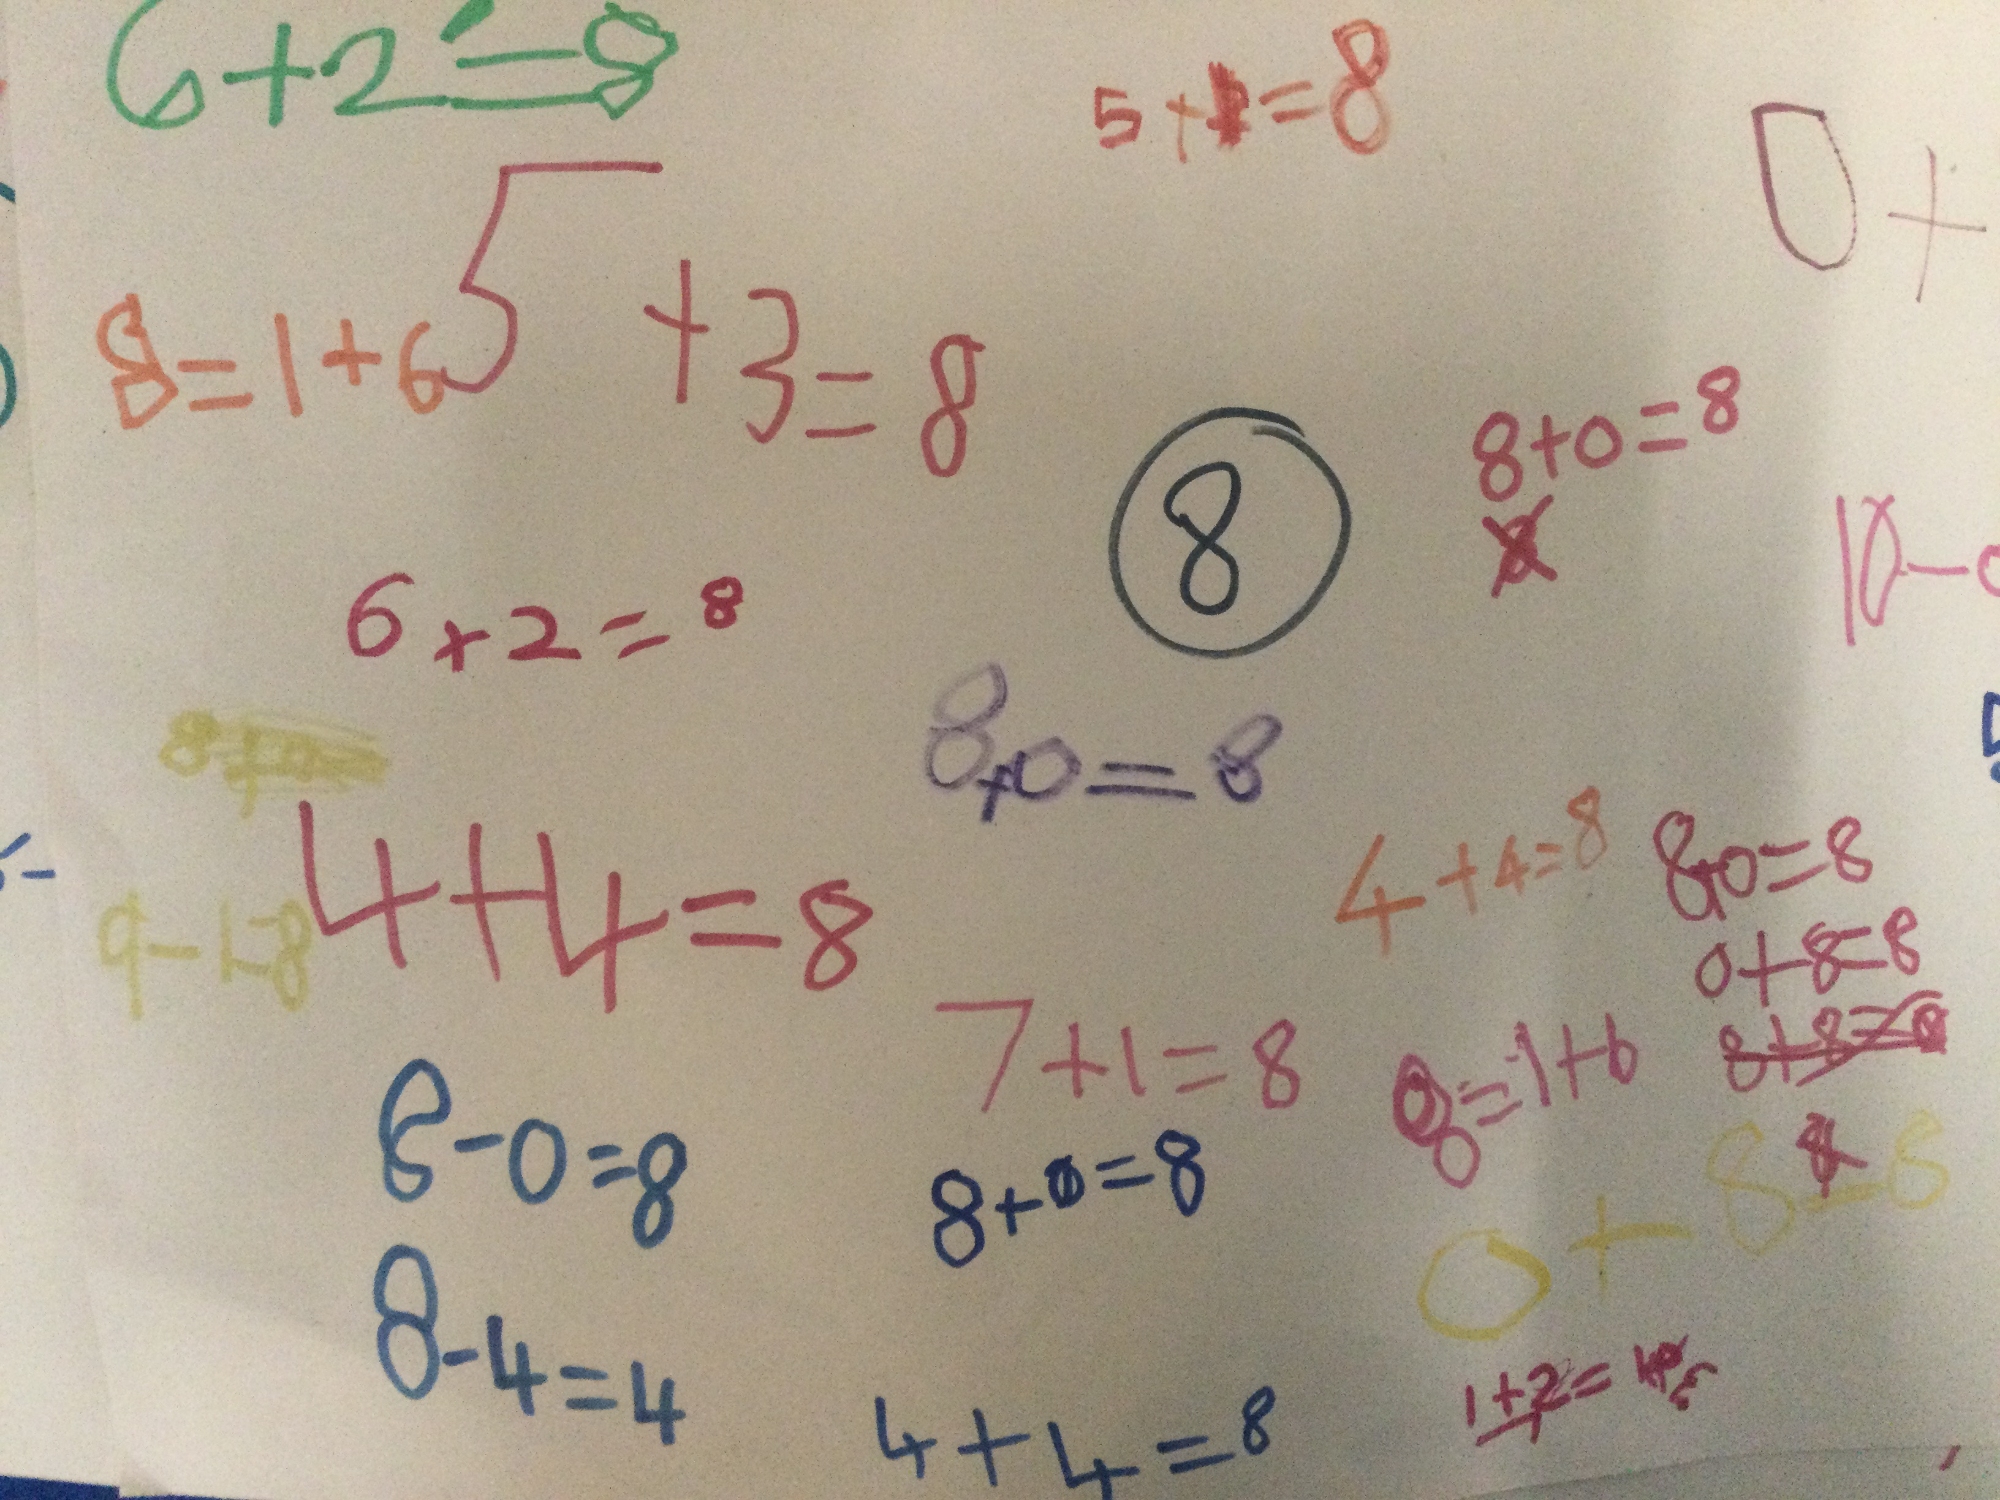 6+2=8
5+1=8
0+
8=1+6
5+3=8
8+0=8
8
10-0
6+2=8
8+0=8
4+4=8
8+0=8
4+4=8
0+8=8
9-1=8
7+1=8
8=1+6
8+8=8
8-0=8
8+0=8
0+8=8
8-4=4
1+2=
4+4=8